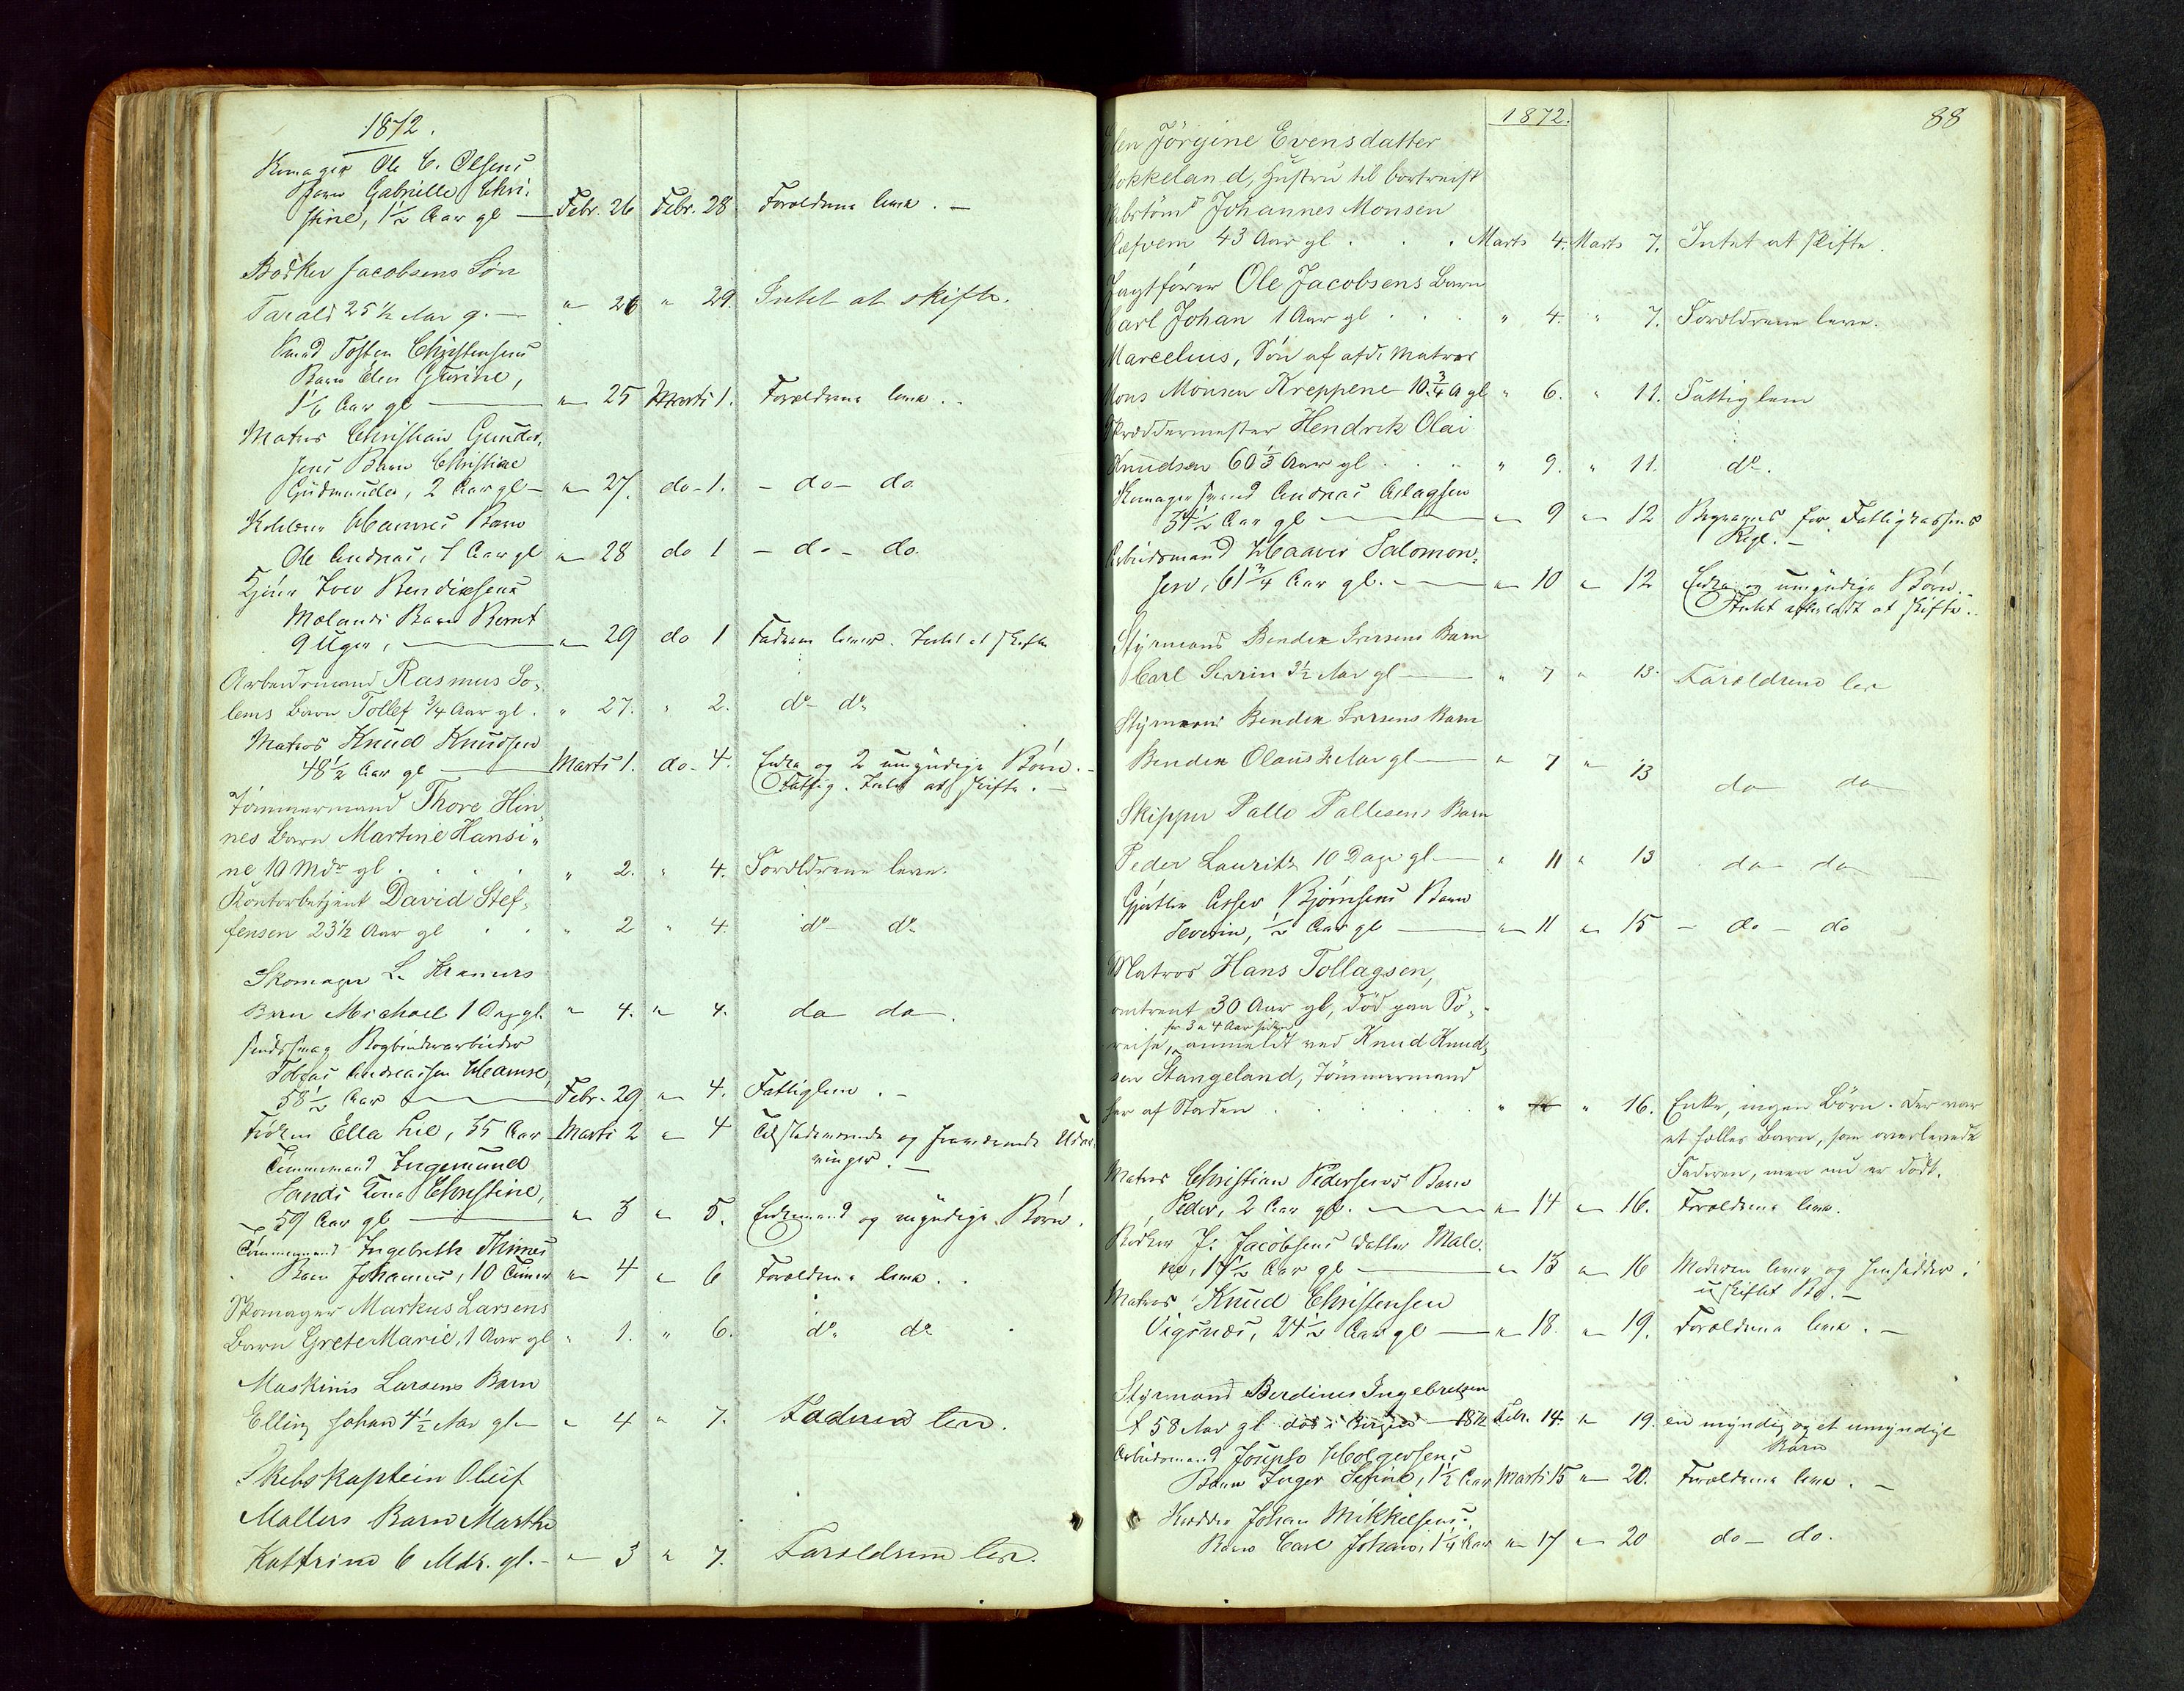 1872.
Skomager Ole C. Olsens
Barn Gabrielle Chri-
stine, 1½ Aar gl — Febr. 26 Febr. 28 Forældrene leve. —
Bødker Jacobsens Søn
Tarald 25½ Aar g. — " 26 " 29. Intet at skifte.
Smed Tosten Christensens
Barn Elen Gurine,
1⅙ Aar gl — " 25 Marts 1. Forældrene leve. .
Matros Christian Gunder-
sens Barn Christine
Gudmunda, 2 Aar gl — " 27. do - 1. - do - do
Barn
Ole Andreas, 1 Aar gl " 28 do 1 - do - do.
Bendiksens
Molands Barn Bernt
9 Uger, — " 29 do 1 Faderen lever. Intet at skifte
Arbeidsmand Rasmus So-
lems Barn Tollef ¾ Aar gl. " 27. " 2. do do
Matros Knud Knudsen
48½ Aar gl — Marts 1. do - 4. Enke og 2 umyndige Børn. -
Fattig. Intet at skifte. -
Tømmermand Thore Hin-
nes Barn Martine Hansi-
ne 10 Mdr gl . . . . " 2. " 4. Forældrene leve.
Kontorbetjent David Stef-
fensen 23½ Aar gl . . " 2 " 4. do do
Skomager L. Kramers
Barn Michael 1 Dag gl. " 4. " 4. do do.
Bogbinderarbeider
Tobias Andreassen
58½ Aar — Febr. 29 " 4. Fattiglem. -
Frøken Ella Lie, 35 Aar - Marts 2 " 4 Tilstedeværende og fraværende Udar-
vinger. —
Tømmermand Ingemund
Sands Kone Christine,
59 Aar gl. — " 3 " 5. Enkemand og myndige Børn.
Tømmermand Ingebreth Thimes
Barn Johannes, 10 Timer " 4 " 6 Forældrene leve. .
Skomager Markus Larsens
Barn Grete Marie, 1 Aar gl " 1. " 6. do do
Maskinis Larsens Barn
Elling Johan 4½ Aar gl — " 4 " 7. Faderen lev.
Skibskaptein Oluf
Mallers Barn Marthe
Kathrine 6 Mdr. gl. - " 3 " 7. Foreldrene lev.
1872. 88
Elen Jörgine Evensdatter
Stokkeland, Hustru til bortreist
Johannes Monsen
Refvem 43 Aar gl . . . Marts 4. Marts 7. Intet at skifte.
Jagtfører Ole Jacobsens Barn
Carl Johan 1 Aar gl . . . " 4. " 7. Forældrene leve.
Marcelius, Søn af afd. Matros
Mons Monsen Kreppene 10¾ A gl " 6. " 11. Fattiglem
Skræddermester Hendrik Olai
Knudsen 60⅓ Aar gl . . " 9. " 11. do.
Skomagersvend Andreas Aslagsen
34½ Aar gl — " 9 " 12 Begraves for Fattigkassens
Regn. —
Arbeidsmand Haaver Salomon-
sen, 61¾ Aar gl. — " 10 " 12 Enke og umyndige Børn. -
Intet efterladt at skifte. -
Styrmand Bendix Iversens Barn
Carl Severin 3½ Aar gl — " 7 " 13. Forældrene lev
Styrmand Bendix Iversens Barn
Bendix Olaus 2 Aar gl — " 7 " 13 do do
Skipper Palle Pallesens Barn
Peder Lauritz 10 Dage gl — " 11 " 13 do do
Gjørtler Asser Bjørnsens Barn
Severin, ½ Aar gl — " 11 " 15 - do - do
Matros Hans Tollagsen,
omtrent 30 Aar gl, død paa Sø-
for 3 a 4 Aar siden
reise, anmeldt ved Knud Knud-
sen Stangeland, Tømmermand
her af Staden . . . . . " " 16. Enke, ingen Børn. Der var
et fælles Barn, som overlevede
Faderen, men nu er dødt.
Matros Christian Pedersens Barn
Peder, 2 Aar gl. — " 14 " 16. Forældrene leve.
Bødker J. Jacobsens Datter Male-
ne, 17½ Aar gl — " 13 " 16 Moderen lever og hensidder i
uskiftet Bo. —
Matros Knud Christensen
Vigsnæs, 24½ Aar gl — " 18. " 19. Forældrene leve. —
Styrmand Berdines Ingebretsen
58 Aar gl død i Bergen — 1872 Febr. 14. " 19. en myndig og et umyndigt
Barn
Arbeidsmand Joseph Holgersens
Barn Inger Serine, 1½ Aar Marts 15 " 20. Forældrene leve. —
Johan Mikkelsens
Barn Carl Johan, 1¼ Aar " 17 " 20 do - do.